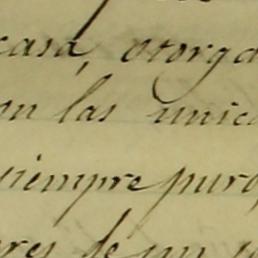 casa, otorga
on las unica
siempre puro
res de un